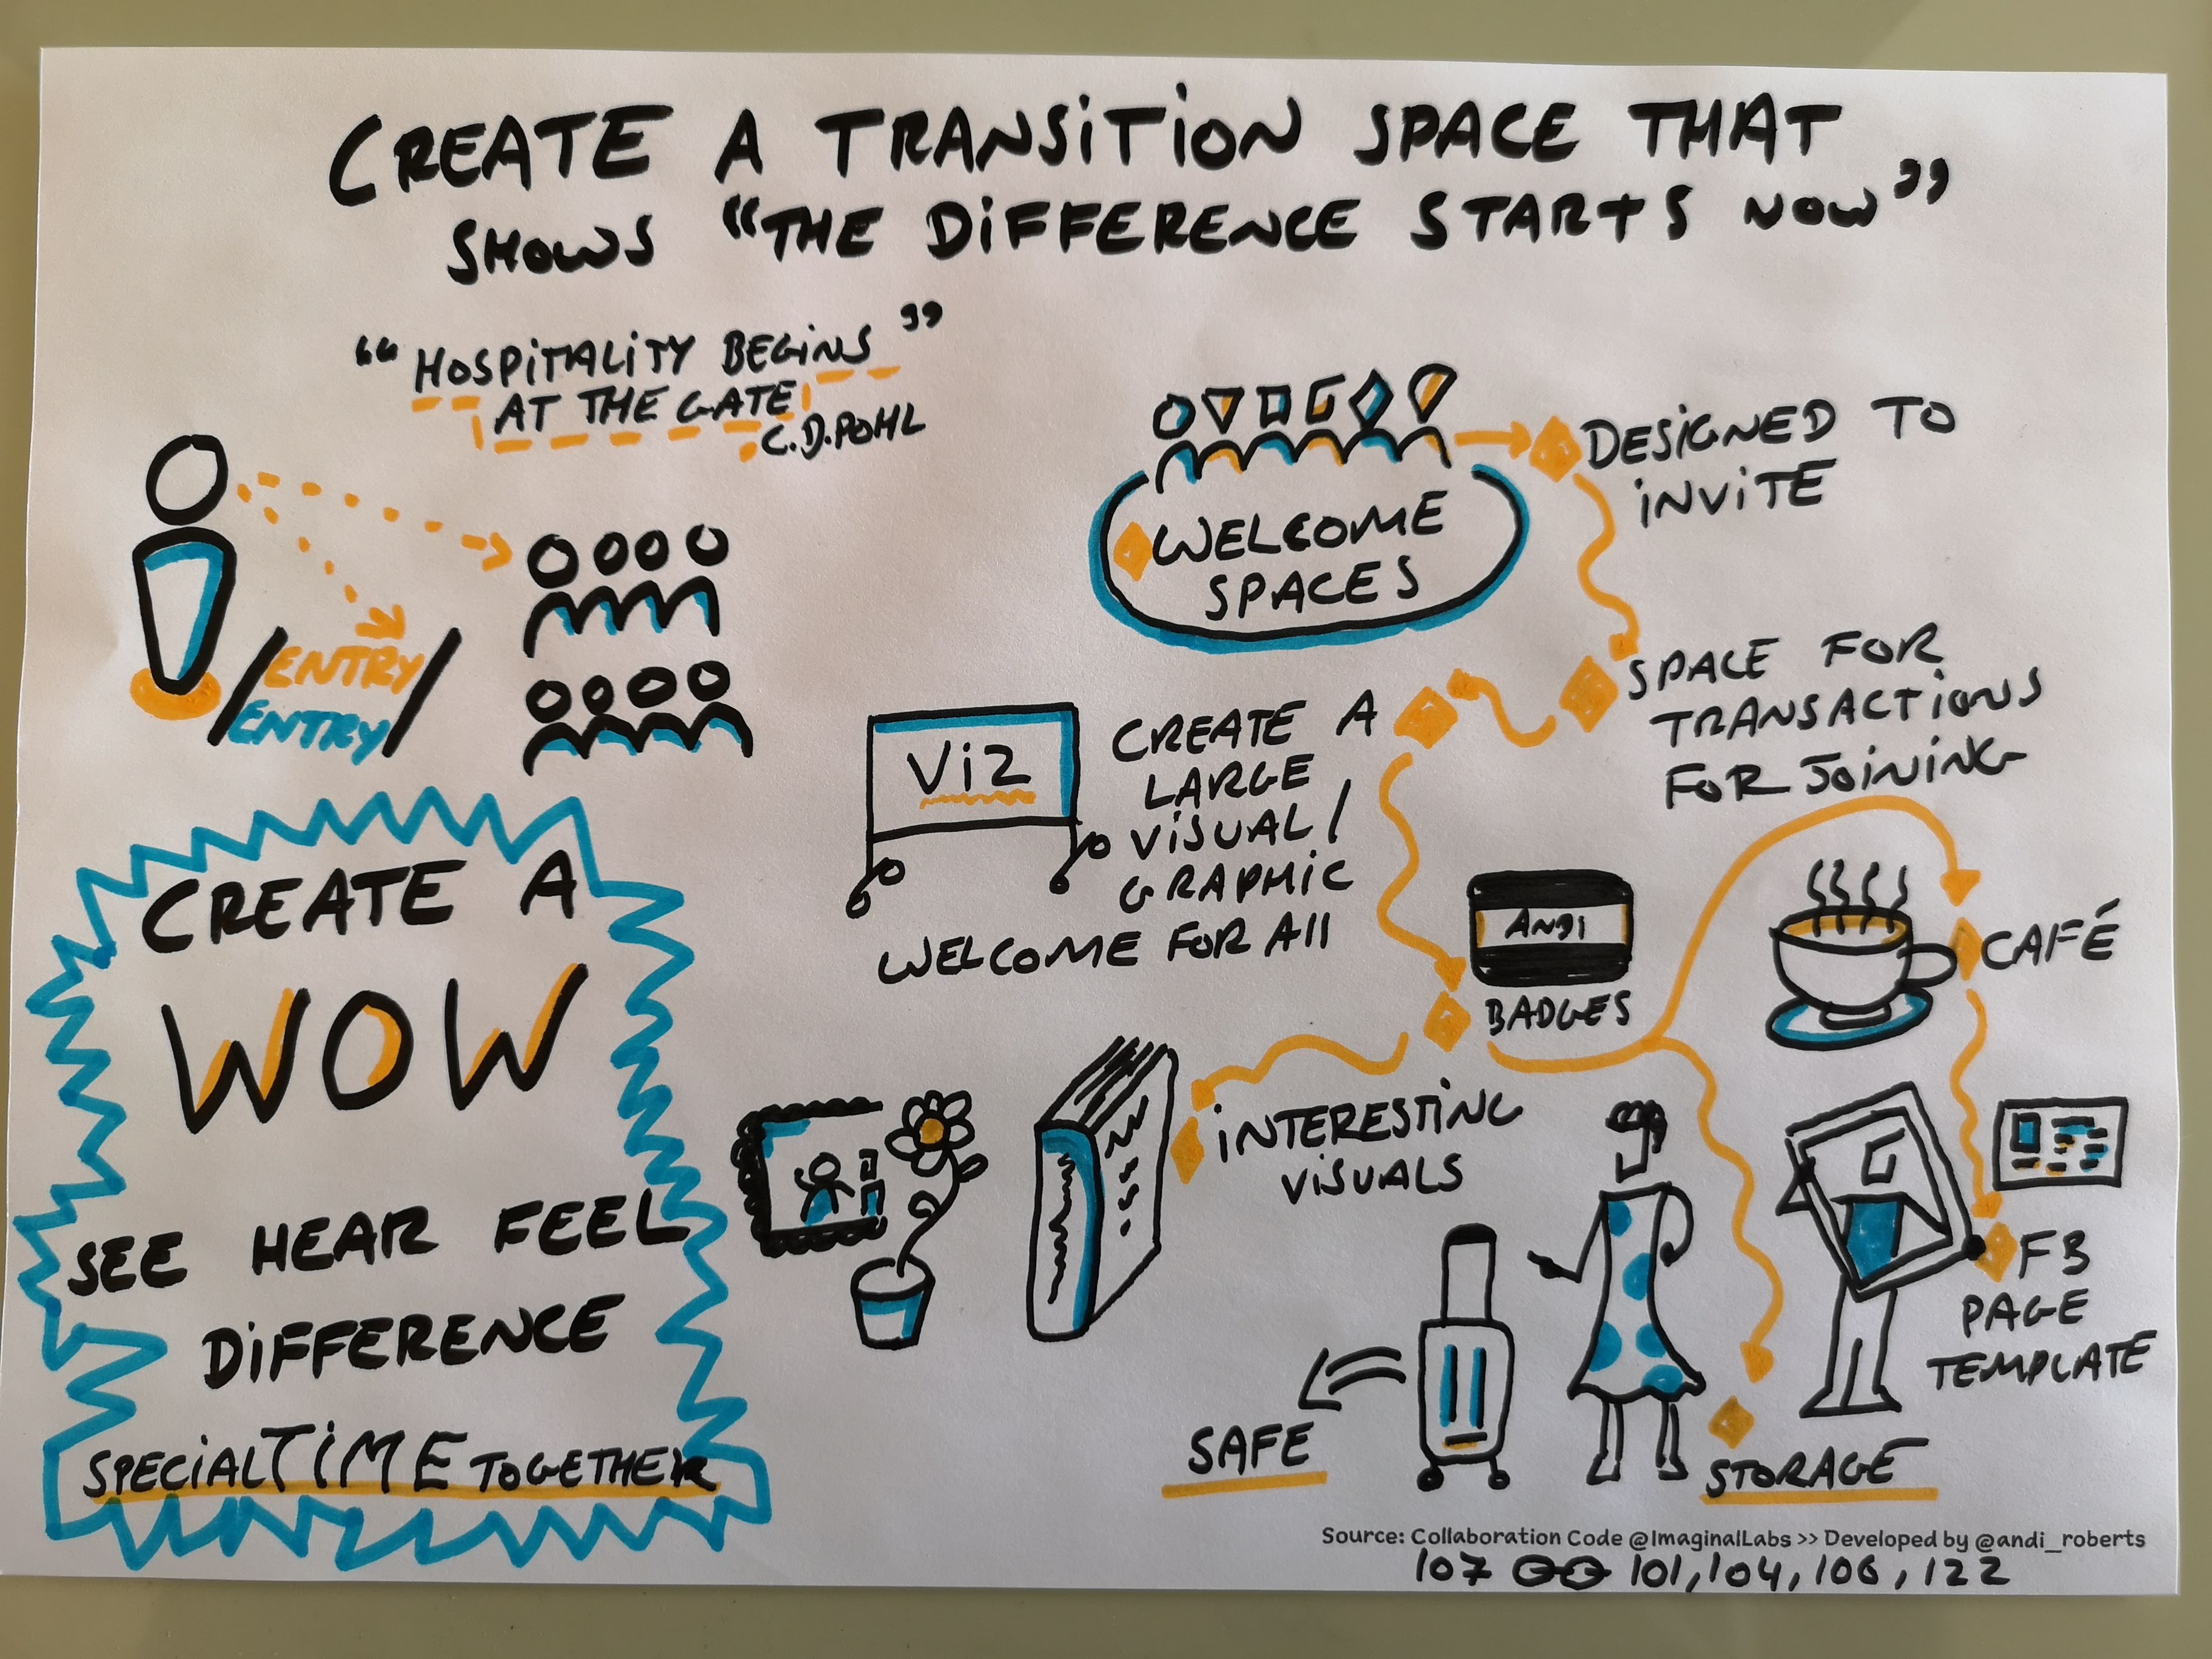 CREATE A TRANSITION SPACE THAT
SHOWS "THE DIFFERENCE STARTS NOW"
"HOSPITALITY BEGINS"
AT THE GATE
C.D.POHL
ENTRY
ENTRY
WELCOME
SPACES
DESIGNED TO
INVITE
SPACE FOR
TRANSACTIONS
FOR JOINING
Viz
CREATE A
LARGE
VISUAL/
GRAPHIC
WELCOME FOR All
ANDI
BADGES
CAFÉ
CREATE A
WOW
SEE HEAR FEEL
DIFFERENCE
SPECIAL TIME TOGETHER
INTERESTING
VISUALS
FB
PAGE
TEMPLATE
SAFE
STORAGE
Source: Collaboration Code @ImaginalLabs >> Developed by @andi_roberts
107 101, 104, 106, 122